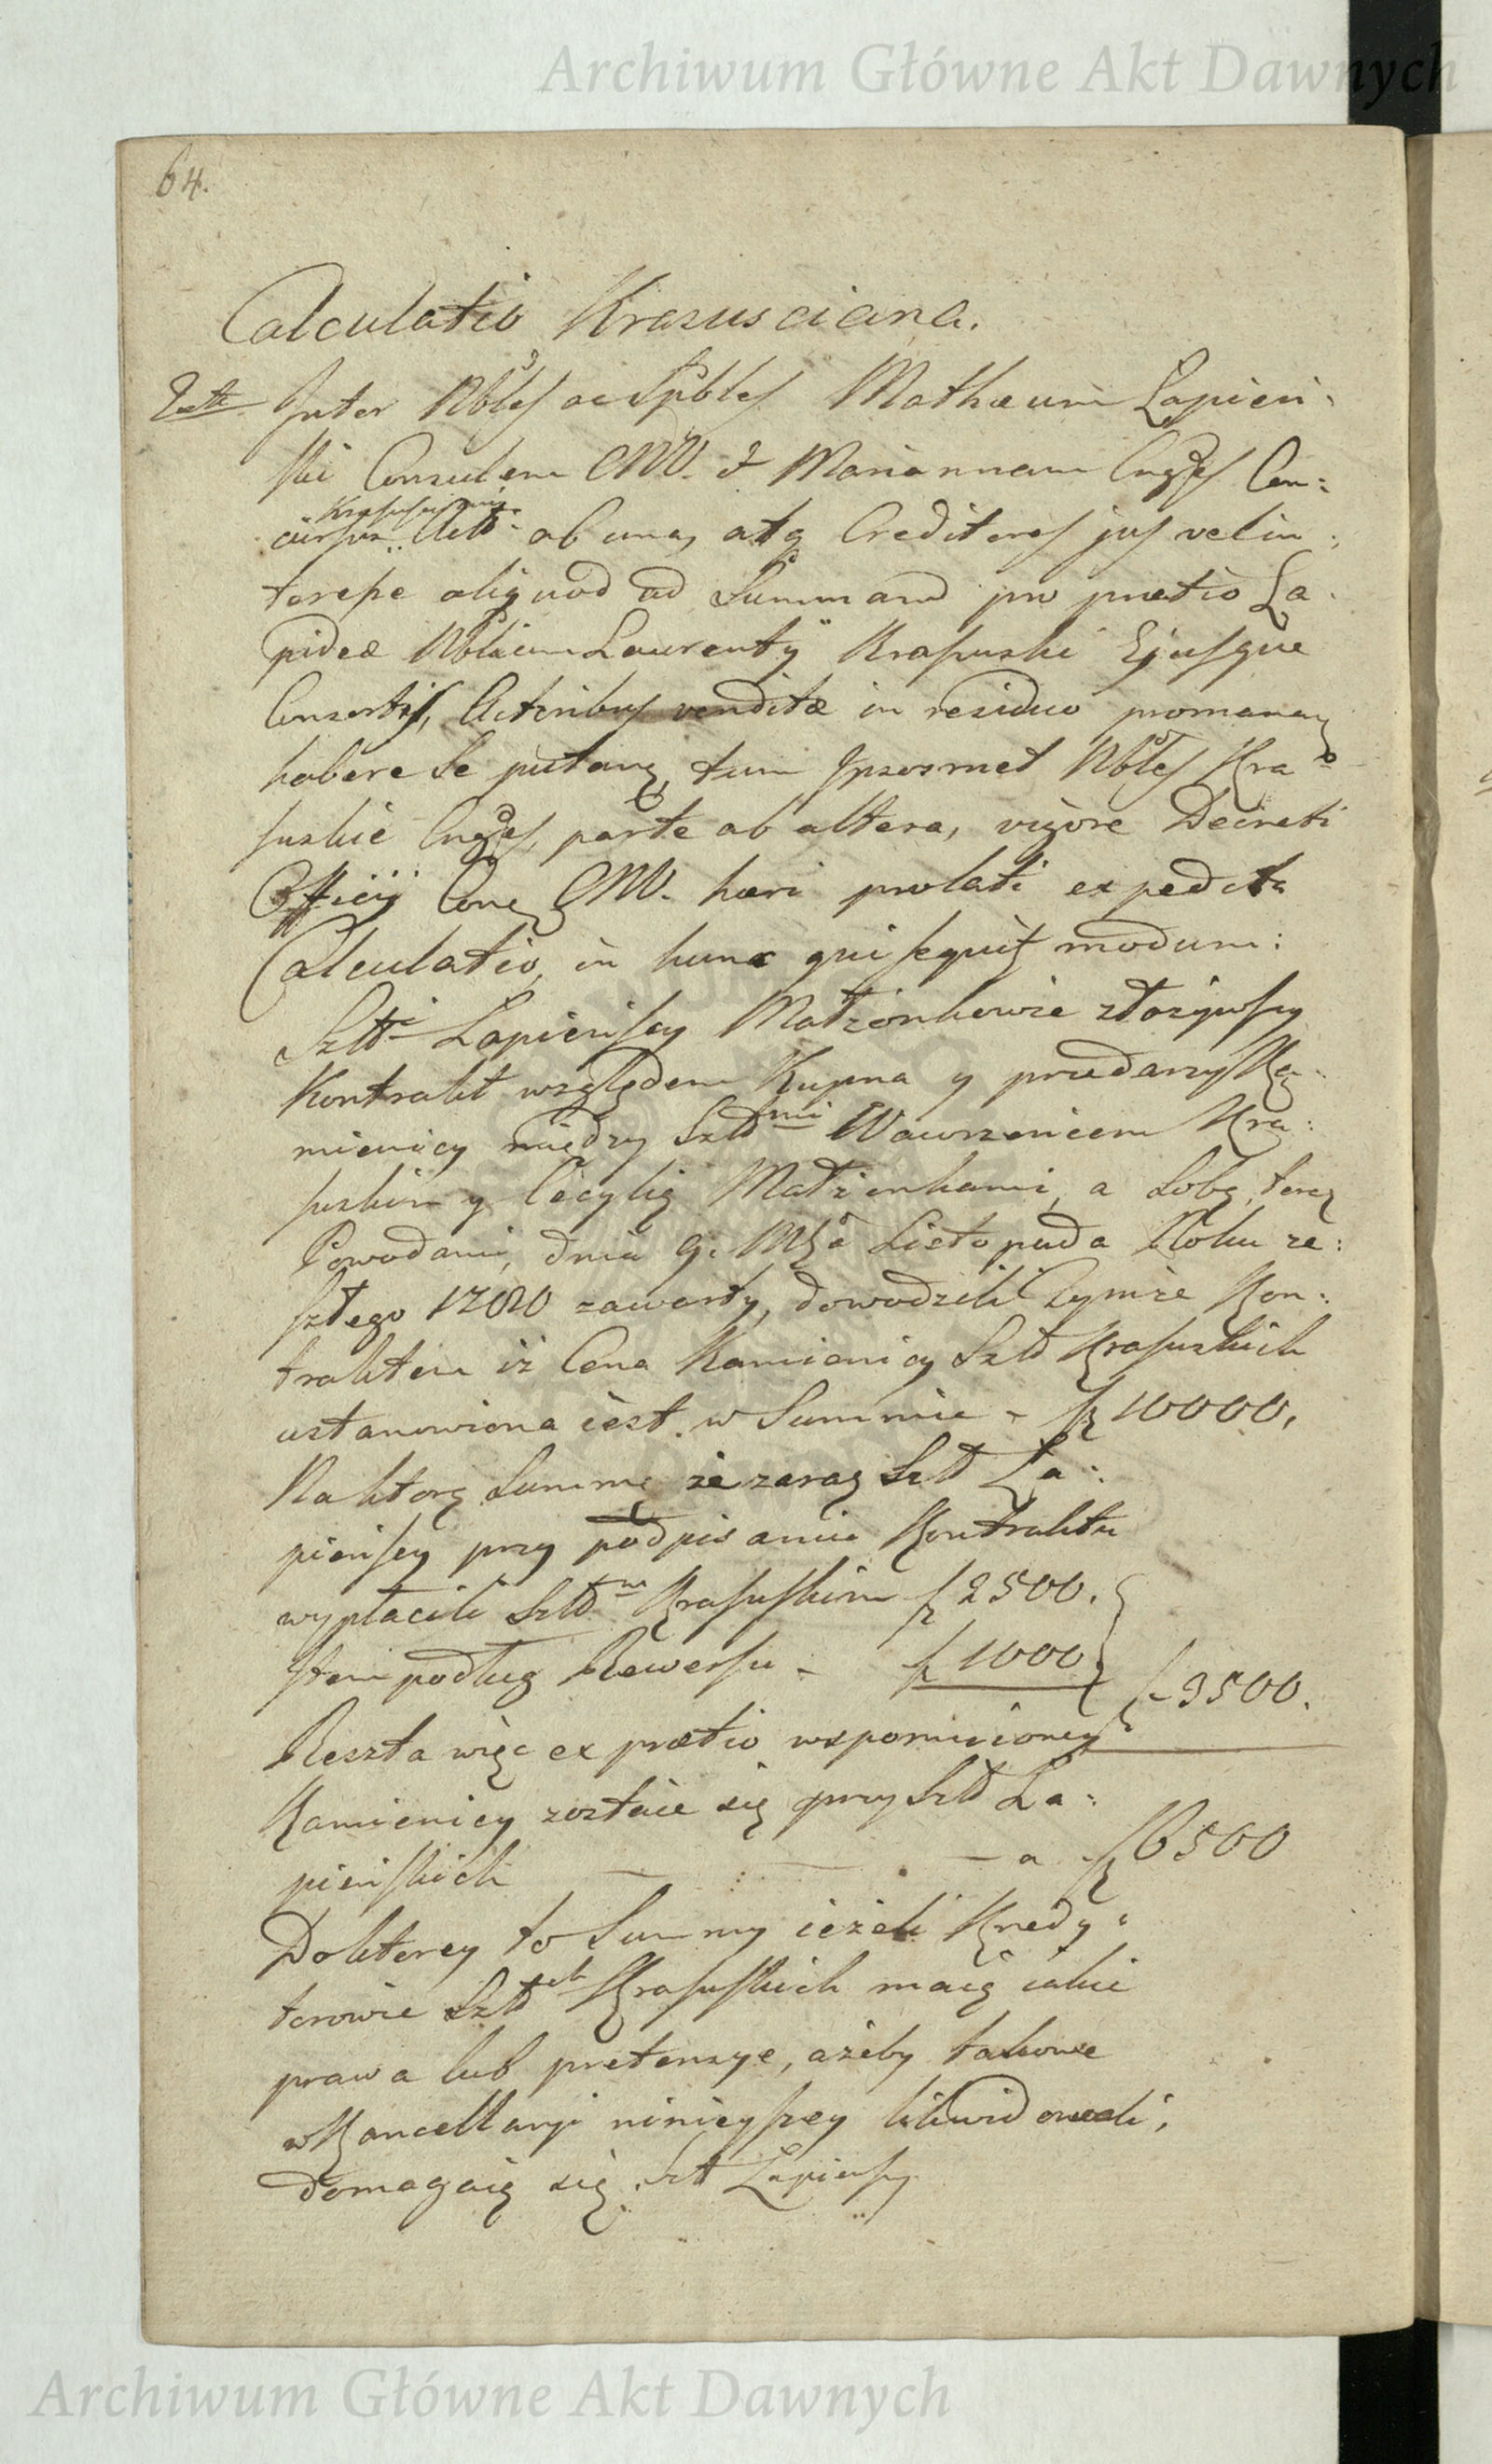 Archiwum Główne Akt Dawnych
64.
Calculatio Krasusciana.
Inter Nbles ac Spbles Mathæum Lapień:
ski Consulem CMV. & Mariannam Cngđes Con:
Krasuscianis
ab una, atq Creditores jus vel in:
teresse aliquod ad Summam pro pretio La:
pideæ Nblium Laurentÿ Krasuski Ejusque
Consortis, Actoribus venditæ in residuo promanan
habere se putan, tum Ipsosmet Nbles Kra
suskie Cngđes, parte ab altera, vigore Decreti
Officÿ Con CMV. heri prolati expedita
Calculatio, in hunc qui sequit modum:
Sztt Lapieńscy Małżonkowie złożywszy
Kontrakt względem Kupna y przedarzy Ka:
mienicy między Szltmi Wawrzeńcem Kra:
suskim y Cecylią Małżonkami, a Sobą, teraz
Powodami, dnia 9. Mca Listopada Roku ze:
szłego 1780 zawarty, dowodzili Tymże Kon:
traktem iż Cena Kamienicy Szlt Krasuskich
ustanowiona iest w Summie - f 10000.
Na ktorą Summę że zaraz Szlt La:
pieńscy przy podpisaniu Kontraktu
wypłacili Szltm Krasuskim f 2500.
Item podług Rewersu - f 1000
f 3500.
Reszta więc ex prætio wspomnioney
Kamienicy zostaie się przy Szlt La:
pieńskich - - a f 6500
Do ktorey to Summy ieżeli Kredy:
torowie Szltch Krasuskich maią iakie
prawa lub pretensye, ażeby takowe
w Kancellaryi ninieyszey likwidowali,
domagaią się Szlt Lapieńscy
Archiwum Główne Akt Dawnych